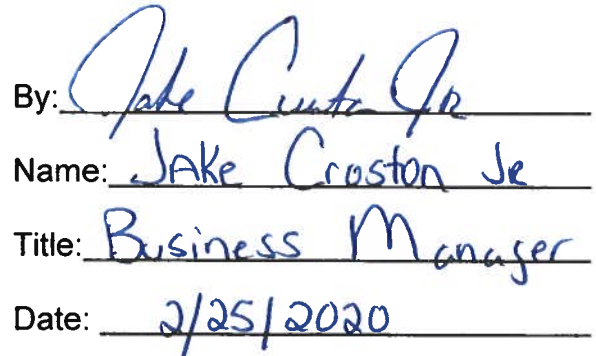 By: Jake Croston Jr
Name: JAKe Croston Jr
Title: Business Manager
Date: 2/25/2020